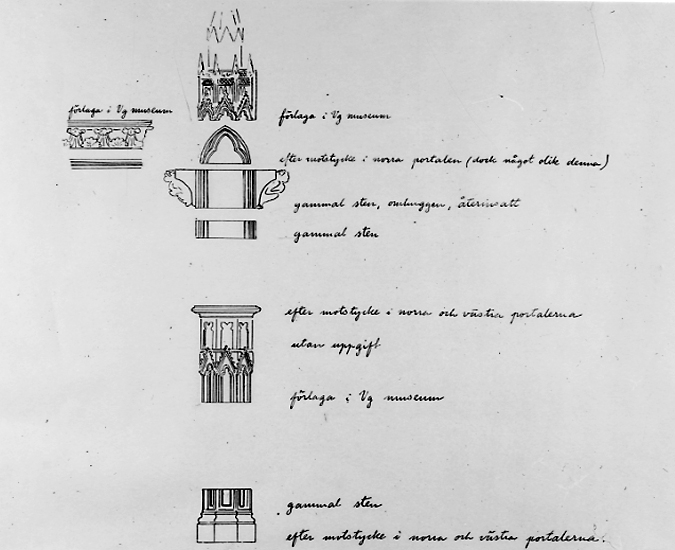 förlaga i Vg museum
förlaga i Vg museum
efter motstycke i norra portalen (dock något olik denna)
gammal sten, omhuggen, återinsatt
gammal sten
efter motstycke i norra och västra portalerna
utan uppgift
förlaga i Vg museum
gammal sten
efter motstycke i norra och västra portalerna.